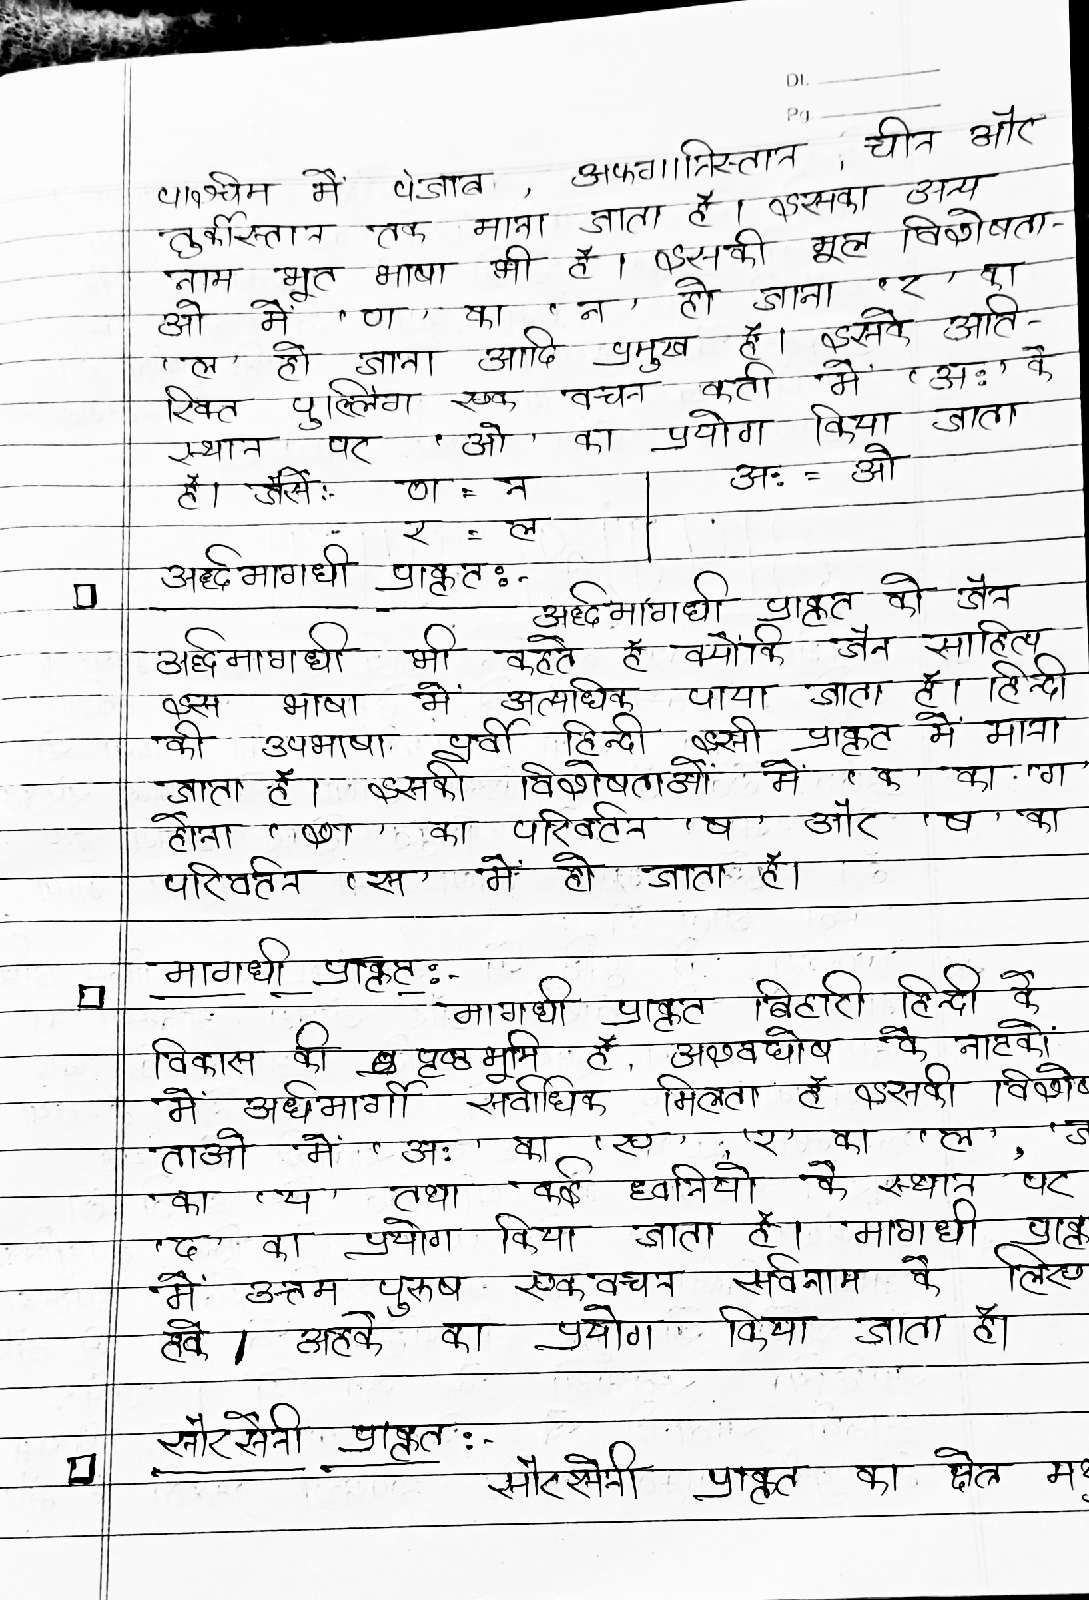 Dt.
Pg
पश्चिम में पंजाब , अफगानिस्तान , चीन और
तुर्कीस्तान तक माना जाता है। इसका अन्य
नाम भूत भाषा भी है। इसकी मूल विशेषता-
ओ में 'ण' का 'न' हो जाना 'र' का
'ल' हो जाना आदि प्रमुख है। इसके अति-
रिक्त पुल्लिंग एक वचन कर्ता में 'अः' के
स्थान पर 'ओ' का प्रयोग किया जाता
है। जैसे:- ण = न | अः = ओ
र = ल
अर्द्धमागधी प्राकृत:-
अर्द्धमागधी प्राकृत को जैन
अर्द्धमागधी भी कहते है क्योंकि जैन साहित्य
इस भाषा में अत्यधिक पाया जाता है। हिन्दी
की उपभाषा पूर्वी हिन्दी इसी प्राकृत में माना
जाता है। इसकी विशेषताओं में 'क' का 'ग'
होना 'श' का परिवर्तन 'ष' और 'ष' का
परिवर्तन 'स' में हो जाता है।
मागधी प्राकृत:-
मागधी प्राकृत बिहारी हिन्दी के
विकास की पृष्ठभूमि है, अश्वघोष के नाटकों
में अर्धमार्गी सर्वाधिक मिलता है इसकी विशेष
ताओ में 'अः' का 'ए' , 'र' का 'ल' , 'ज
का 'य' तथा कई ध्वनियो के स्थान पर
'द' का प्रयोग किया जाता है। मागधी प्राकृ
में उत्तम पुरूष एकवचन सर्वनाम के लिए
हके / अहके का प्रयोग किया जाता है।
सौरसैनी प्राकृत:-
सौरसेनी प्राकृत का क्षेत्र मथु